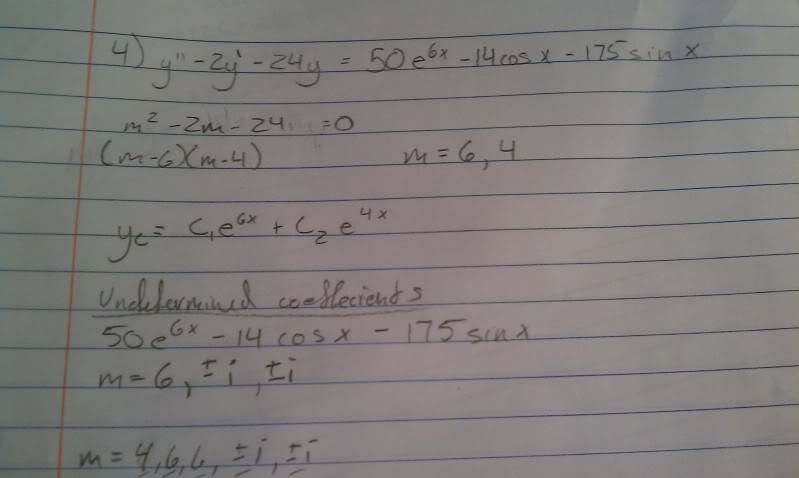 4) y'' - 2y' - 24y = 50e^{6x} - 14cos x - 175 sin x
m² - 2m - 24 = 0
(m-6)(m-4) m = 6, 4
y_c = c₁e^{6x} + c₂e^{4x}
Undetermined coeffecients
50e^{6x} - 14 cos x - 175 sin x
m = 6, ± i, ± i
m = 4, 6, 6, ± i, ± i